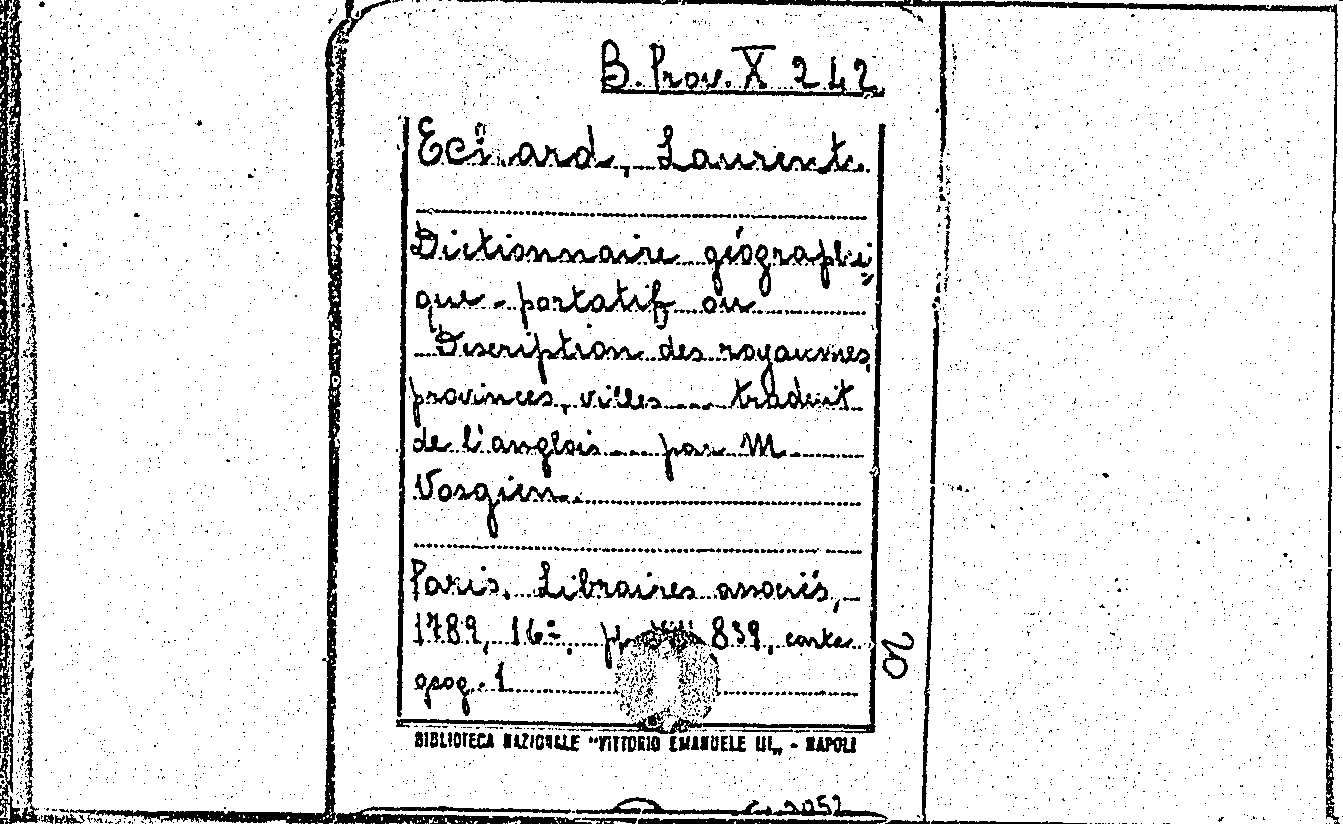 B. Prov. X 242
Echard, Laurent.
Dictionnaire géographi=
que-portatif ou
Description des royaumes,
provinces, villes.... traduit
de l'anglois.... par M
Vosgien.
Paris, Libraires associés,
1789, 16º, pp. 839, carte
geog. 1
20
BIBLIOTECA NAZIONALE "VITTORIO EMANUELE III" - NAPOLI